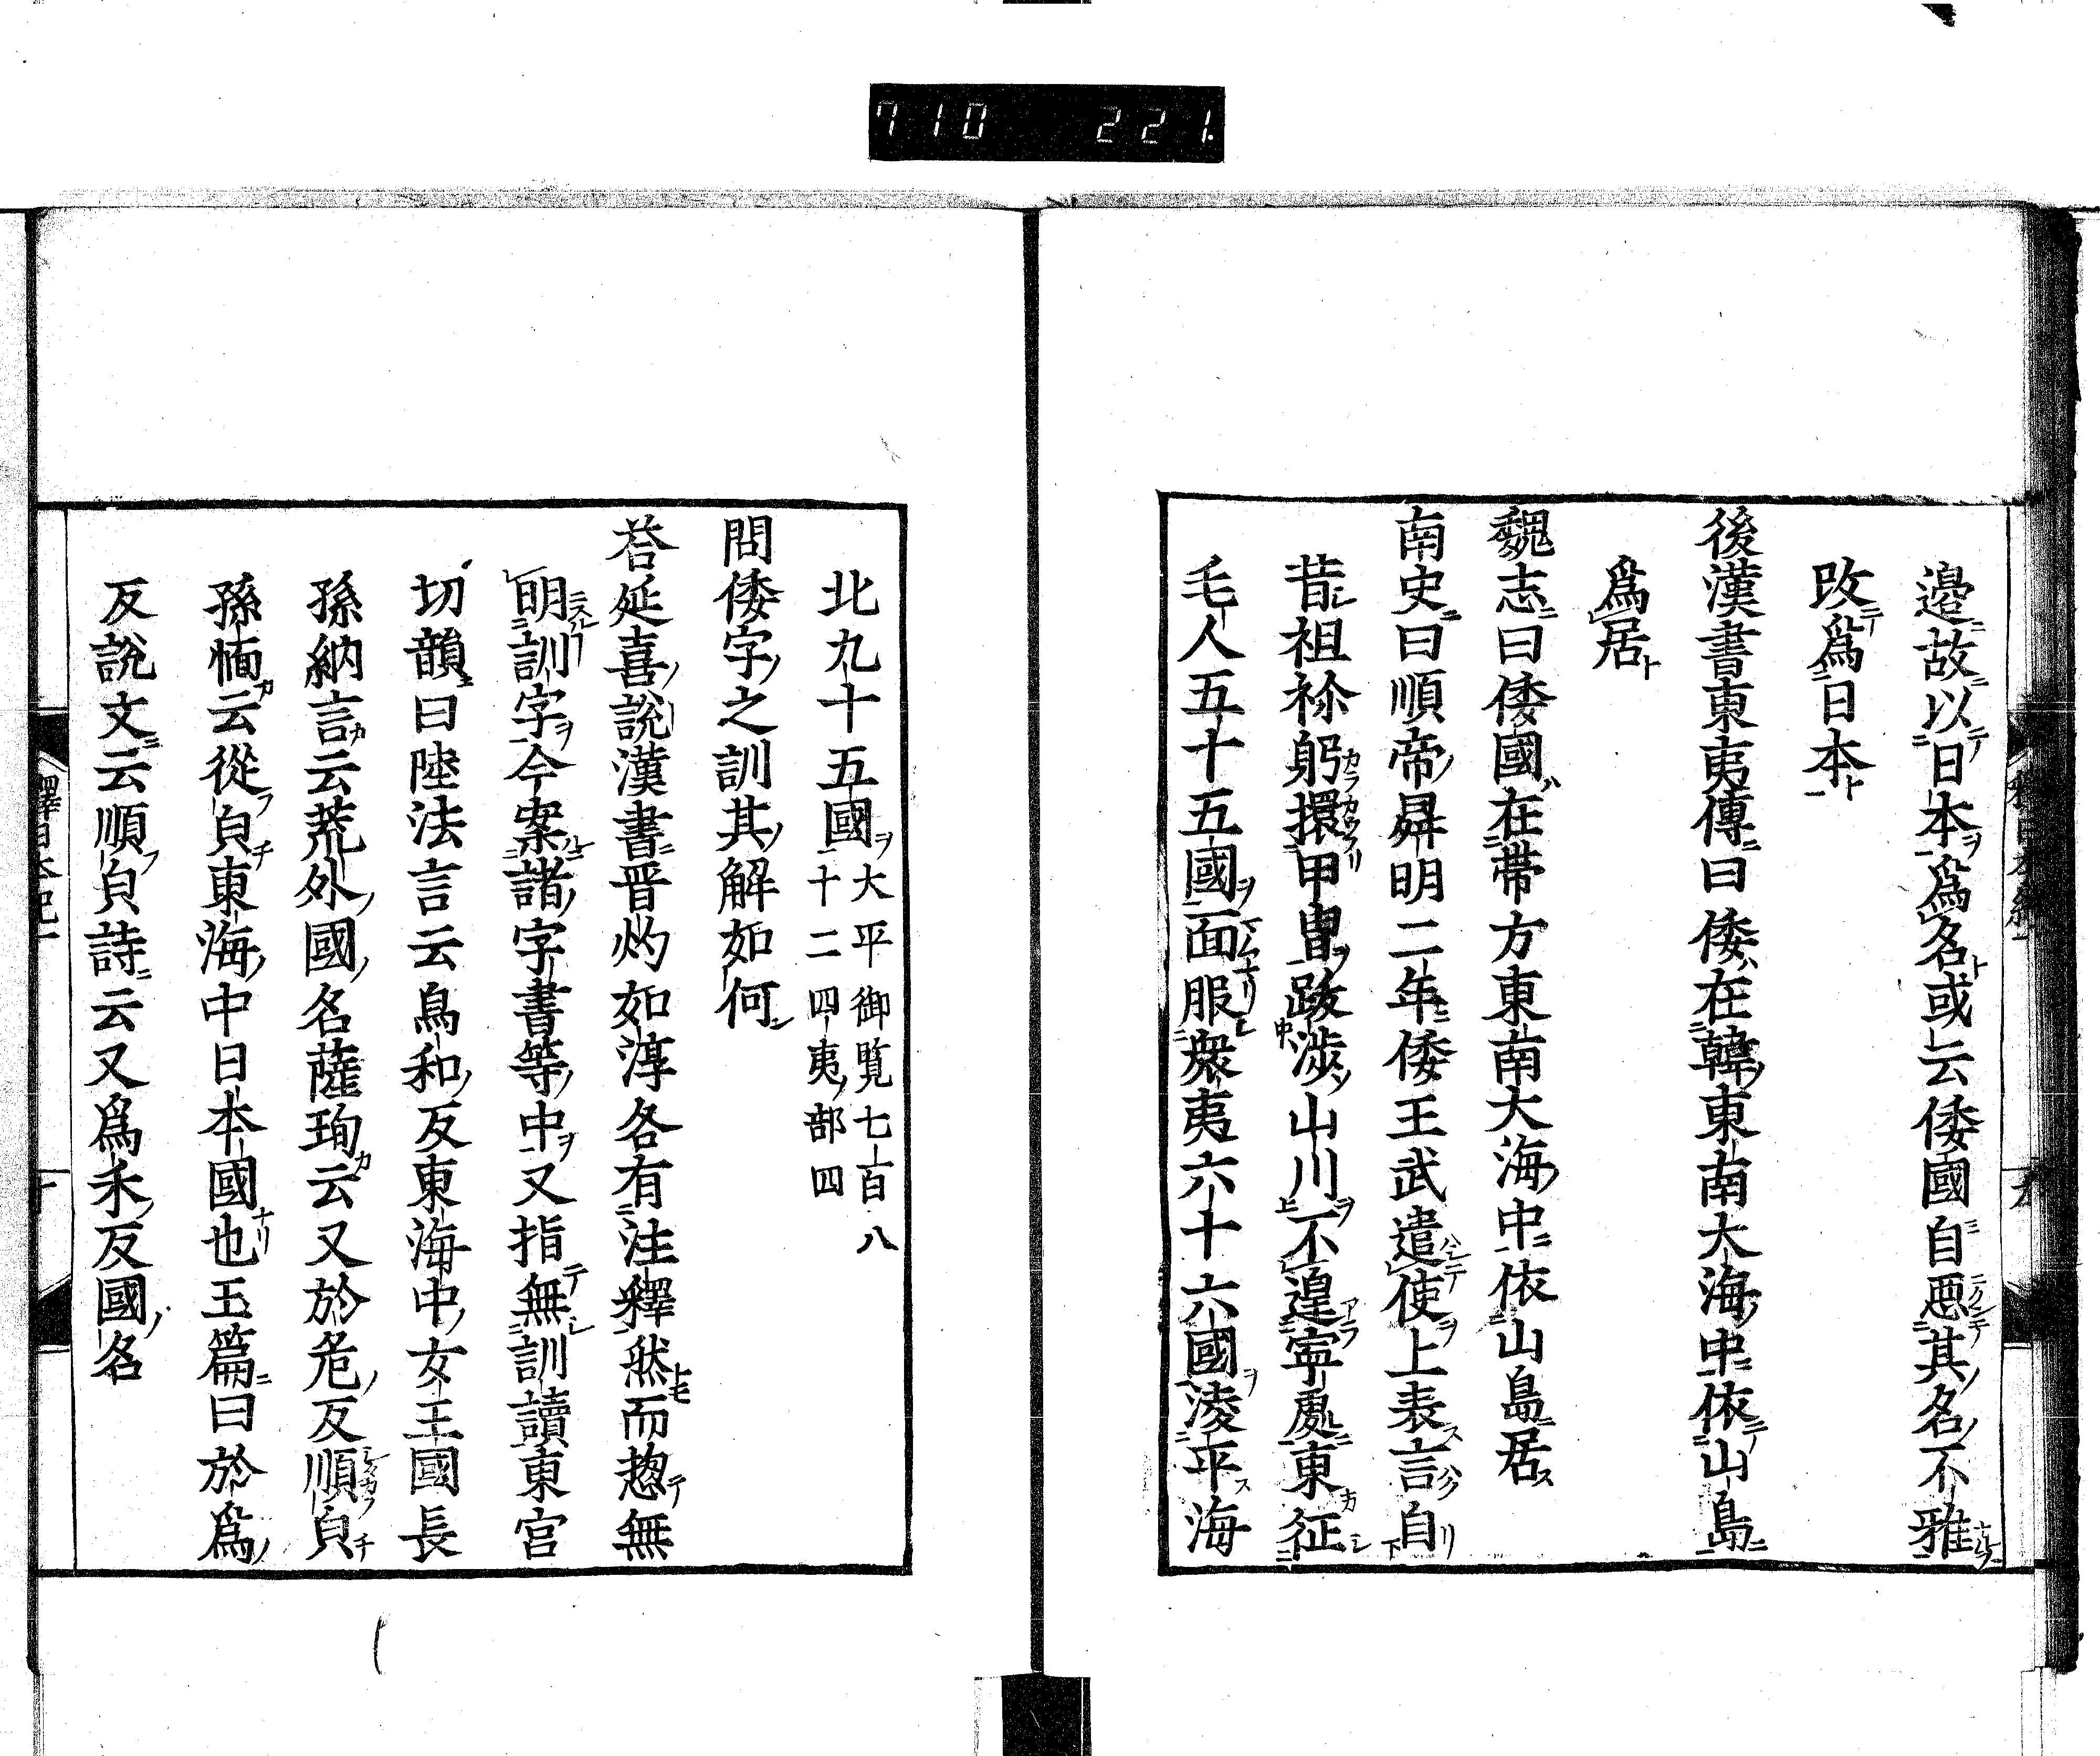 710 221
邉故以日本爲名或云倭國自惡其名不雅
改爲日本
後漢書東夷傳曰倭在韓東南大海中依山島
爲居
魏志曰倭國在帶方東南大海中依山島居
南史曰順帝昇明二年倭王武遣使上表言自
昔祖祢躬擐甲冑跋渉山川不遑寧處東征
毛人五十五國西服衆夷六十六國淩平海
北九十五國
大平御覽七百八
十二四夷部四
問倭字之訓其解如何
荅延喜說漢書晋灼如淳各有注釋然而揔無
明訓字今案諸字書等中又指無訓讀東宮
切韻曰陸法言云烏和反東海中女王國長
孫納言云荒外國名薩珣云又於危反順皃
孫愐云從皃東海中日本國也玉篇曰於爲
反說文云順皃詩云又爲禾反國名
釋日本紀一